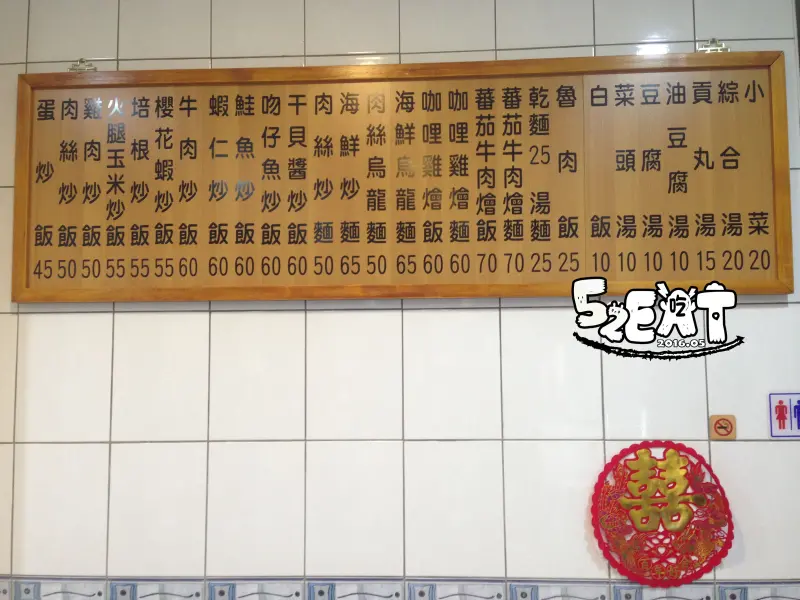 蛋炒飯45
肉絲炒飯50
雞肉炒飯50
火腿玉米炒飯55
培根炒飯55
櫻花蝦炒飯55
牛肉炒飯60
蝦仁炒飯60
鮭魚炒飯60
吻仔魚炒飯60
干貝醬炒飯60
肉絲炒麵50
海鮮炒麵65
肉絲烏龍麵50
海鮮烏龍麵65
咖哩雞燴飯60
咖哩雞燴麵60
蕃茄牛肉燴飯70
蕃茄牛肉燴麵70
乾麵25湯麵25
魯肉飯25
白飯10
菜頭湯10
豆腐湯10
油豆腐湯10
貢丸湯15
綜合湯20
小菜20
52EAT
吃
2016.05
囍